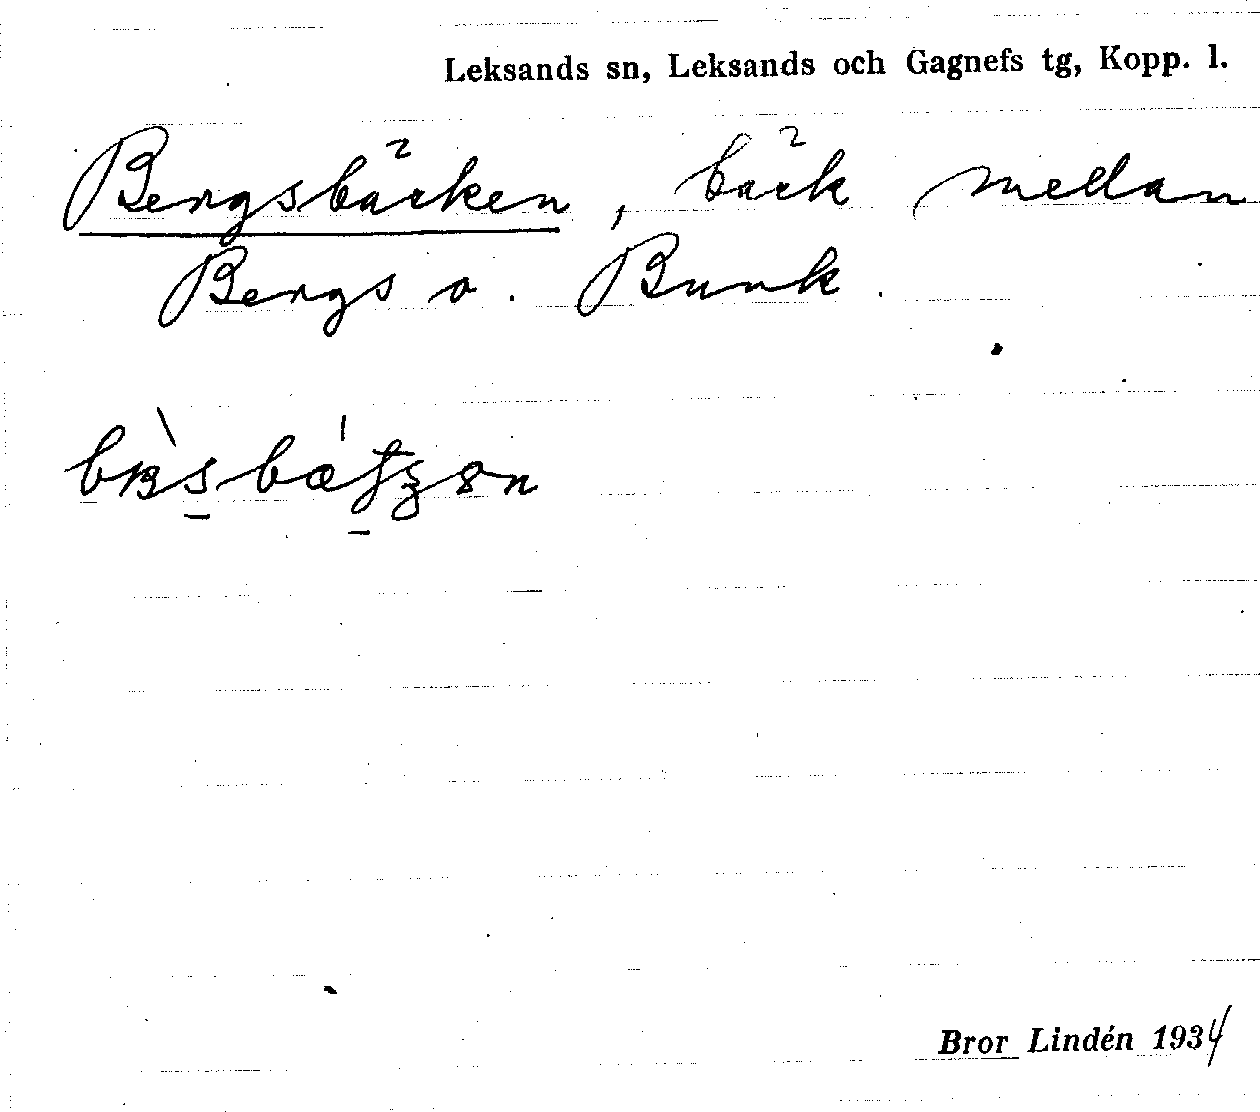 Leksands sn, Leksands och Gagnefs tg, Kopp. l.
Bergsbäcken, bäck mellan
Bergs o. Bunk.
Bror Lindén 1934